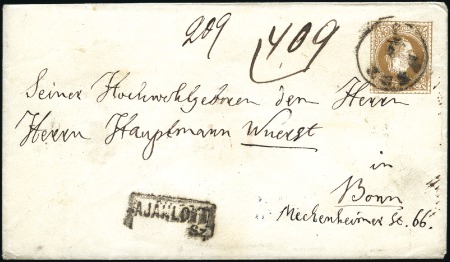 209 409
Seiner Hochwohlgeboren den Herrn
Herrn Hauptmann Wuerst
in
Bonn
Meckenheimer St. 66.
AJÁNLOTT